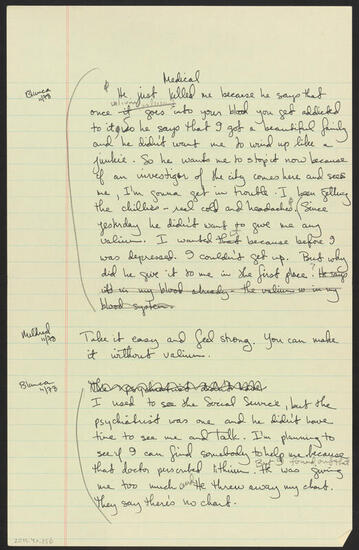 Medical
Blanca
4/73
"He just killed me because he says that
once valium goes into your blood you get addicted
to it, so he says that I got a beautiful family
and he didn't want me to wind up like a
junkie. So he wants me to stop it now because
if an investigor of the city comes here and sees
me, I'm gonna get in trouble. I been getting
the chillies - real cold and headaches. Since
yesterday he didn't want to give me any
valium. I wanted that because before I
was depressed. I couldn't get up. But why
did he give it to me in the first place? He says
it's in my blood already - the valium is in my
blood system.
Mildred
4/73
Take it easy and feel strong. You can make
it without valium.
Blanca
4/73
I used to see the Social Service, but the
psychiatrist was one and he didn't have
time to see me and talk. I'm planning to
see if I can find somebody to help me because
But I found out that
that doctor perscribed lithium. He was giving
me too much and He threw away my chart.
They say there's no chart.
2011.42.156